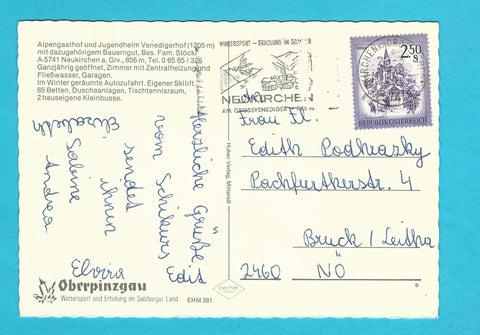 Alpengasthof und Jugendheim Venedigerhof (1205 m)
mit dazugehörigem Bauerngut, Bes. Fam. Stöckl
A-5741 Neukirchen a. Grv., 856 m, Tel. 0 65 65 / 326
Ganzjährig geöffnet, Zimmer mit Zentralheizung und
Fließwasser, Garagen.
Im Winter geräumte Autozufahrt. Eigener Skilift.
85 Betten, Duscheanlagen, Tischtennisraum,
2 hauseigene Kleinbusse.
Herzliche Grüße
vom Schikurs
sendet
ihnen
Edit
Elisabeth
Sabine
Andrea
Elvira
Oberpinzgau
Wintersport und Erholung im Salzburger Land
EHM 381
Huber-Verlag, Mittersill
WINTERSPORT - ERHOLUNG IM SOMMER
NEUKIRCHEN
AM GROSSVENEDIGER
2.50
S
REPUBLIK ÖSTERREICH
An
Frau Fl.
Edith Podhrazky
Pachfurtherstr. 4
Bruck / Leitha
2460 NÖ